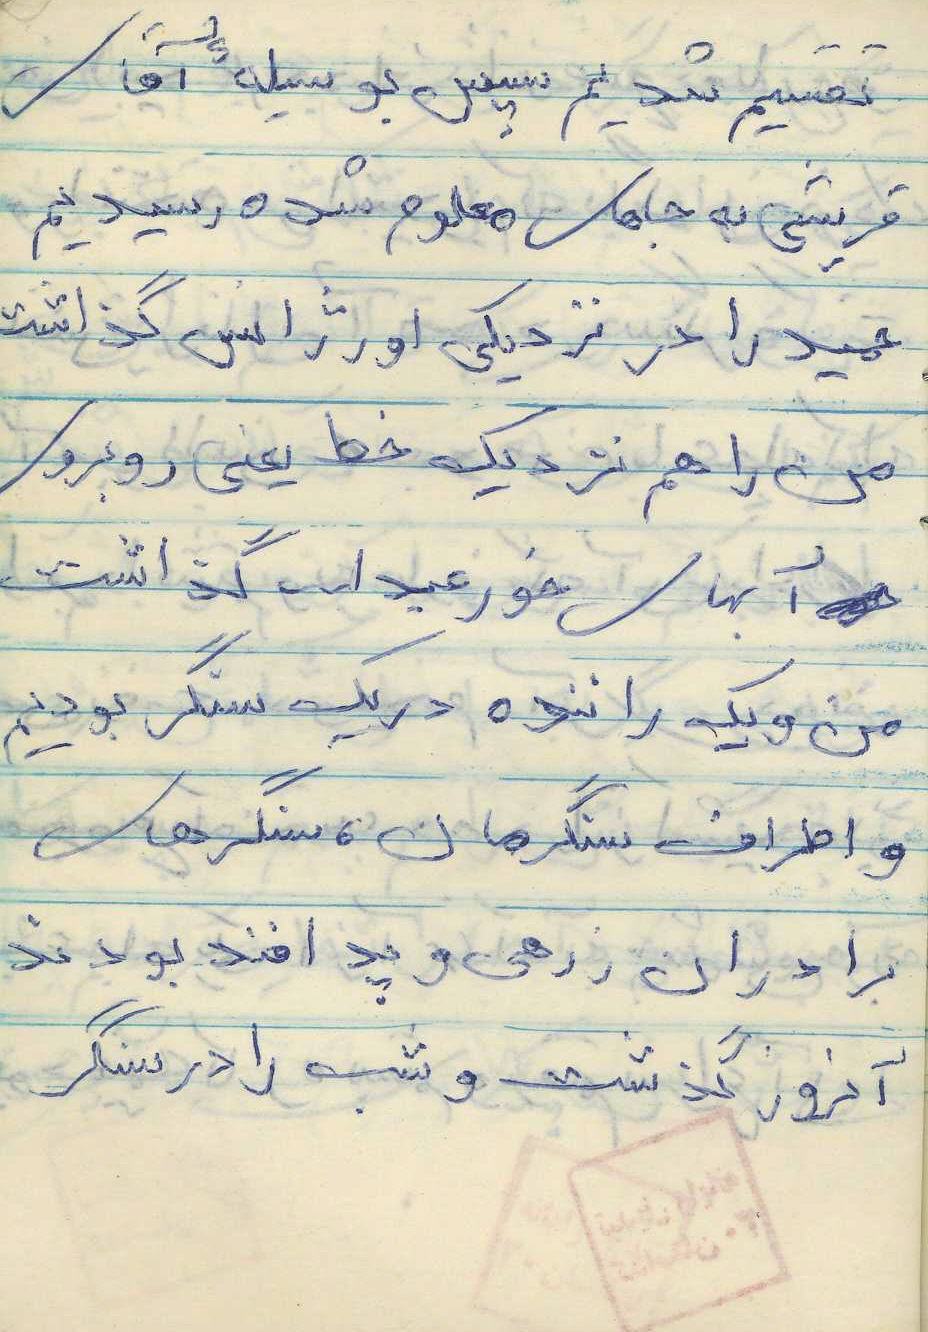 تقسیم شدیم سپس بوسیله آقای
قریشی به جاهای معلوم شده رسیدیم
حمید را در نزدیکی اورژانس گذاشت
من را هم نزدیک خط یعنی روبروی
آبهای خورعبداله گذاشت
من و یک راننده در یک سنگر بودیم
و اطراف سنگرمان ، سنگرهای
برادران زرهی و پدافند بودند
آنروز گذشت و شب را در سنگر